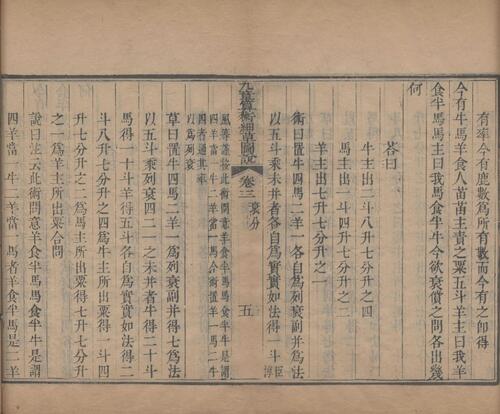 有率今有鹿數爲所有數而今之卽得
今有牛馬羊食人苗苗主責之粟五斗羊主曰我羊
食半馬馬主曰我馬食半牛今欲衰償之問各出幾
何
荅曰
牛主出二斗八升七分升之四
馬主出一斗四升七分升之二
羊主出七升七分升之一
術曰置牛四馬二羊一各自爲列衰副并爲法
以五斗乘未并者各自爲實實如法得一斗臣淳
九章算術細草圖說 卷三 衰分 五
風等謹按此術問意羊食半馬馬食半牛是謂
四羊當一牛二羊當一馬今術置羊一馬二牛
四者通其率
以爲列衰
草曰置牛四馬二羊一爲列衰副并得七爲法
以五斗乘列衰四二一之未并者牛得二十斗
馬得一十斗羊得五斗各自爲實實如法得二
斗八升七分升之四爲牛主所出粟得一斗四
升七分升之二爲馬主所出粟得七升七分升
之一爲羊主所出粟合問
說曰注云此術問意羊食半馬馬食半牛是謂
四羊當一牛二羊當一馬者羊食半馬是二羊